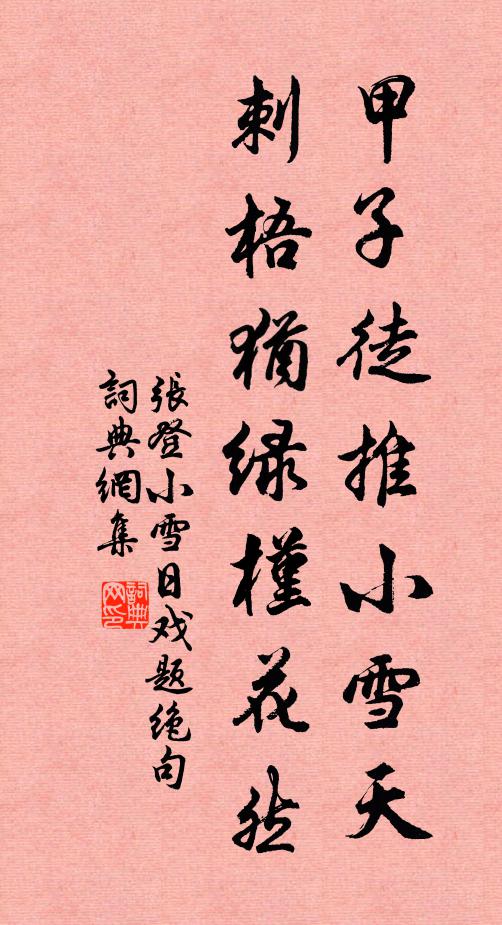 甲子徒推小雪天
刺梧猶绿槿花然
張登小雪日戏题绝句
詞典網集
詞典
网印